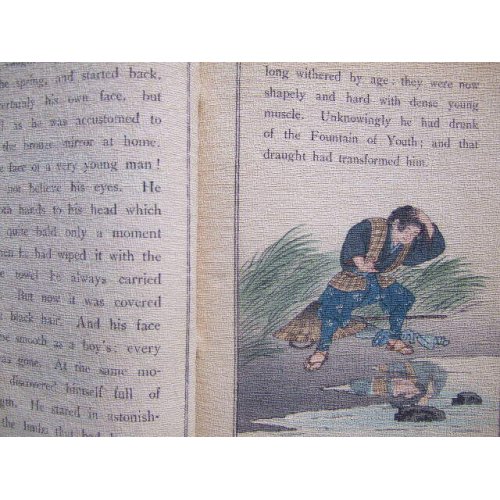 the spring, and started back.
his own face, but
as he was accustomed to
the bronze mirror at home.
face of a very young man!
not believe his eyes. He
hands to his head which
quite bald only a moment
he had wiped it with the
towel he always carried
But now it was covered
black hair. And his face
smooth as a boy's: every
was gone. At the same mo-
discovered himself full of
He stared in astonish-
the limbs that had
long withered by age: they were now
shapely and hard with dense young
muscle. Unknowingly he had drunk
of the Fountain of Youth; and that
draught had transformed him.